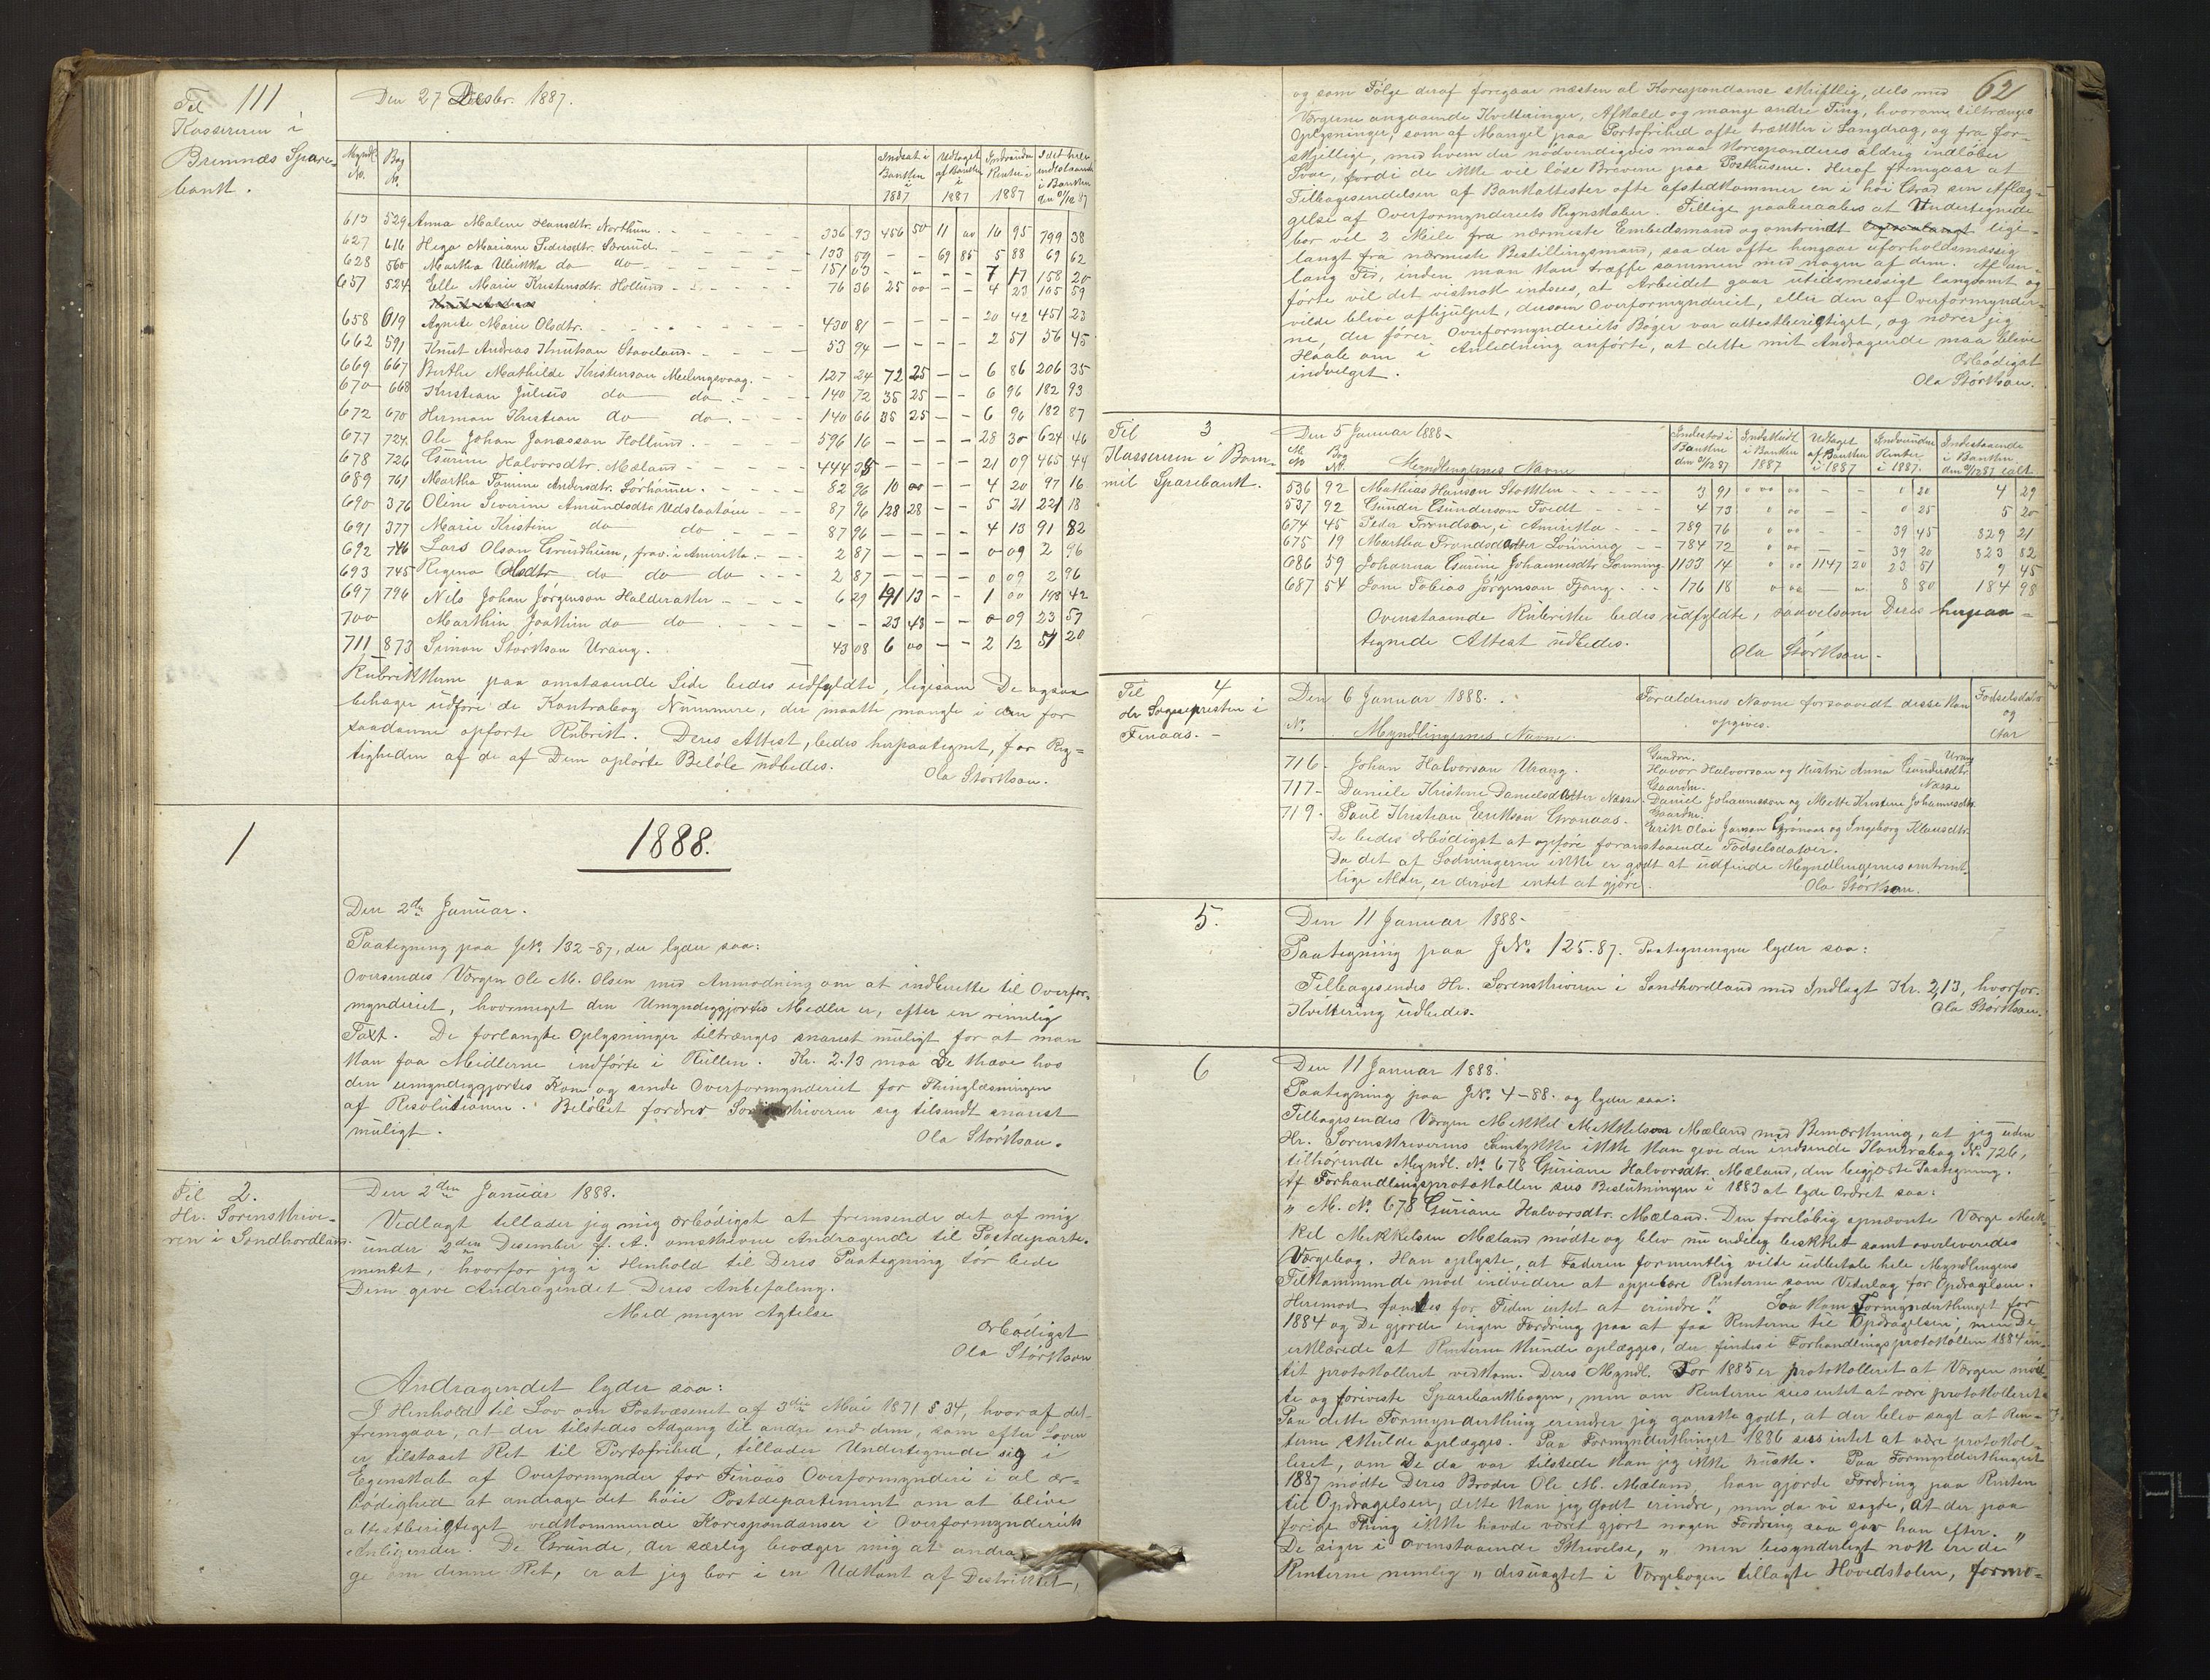 Til 111
Kassereren i
Bremnæs Spare-
bank.
Den 27 Desbr. 1887.
Myndl. No. Bog No. Indsat i Banken i 1887 Udtaget af Banken i 1887 Indvundne Renter i 1887 I det hele indestaaende i Banken den 31/12 87
613 529 Anna Malene Hansdtr. Northun. 336 93 456 50 11 00 16 95 799 38
627 616 Helga Mariane Pedersdtr. Sørund. 133 59 – – 69 85 5 88 69 62
628 560 Martha Ulrikka do do 151 03 – – 7 17 158 20
657 524 Elle Marie Kristensdtr. Hollund 76 36 25 00 – – 4 23 105 59
Knut Andreas
658 619 Agnete Marie Olsdtr. 430 81 – – – – 20 42 451 23
662 591 Knut Andreas Knutson Staveland. 53 94 – – – – 2 51 56 45
669 667 Birthe Mathilde Kristenson Meelingsvaag. 127 24 72 25 – – 6 86 206 35
670 668 Kristian Julius do do. 140 72 35 25 – – 6 96 182 93
672 670 Herman Kristian do do. 140 66 35 25 – – 6 96 182 87
677 724 Ole Johan Janasson Hollund. 596 16 – – – – 28 30 624 46
678 726 Guriene Halvorsdtr. Mæland 444 35 – – – – 21 09 465 44
689 761 Martha Tomine Andersdtr. Sørhammer. 82 96 10 00 – – 4 20 97 16
690 376 Oline Severine Amundsdtr. Udslaatøen 87 96 128 28 – – 5 21 221 18
691 377 Marie Kristine do do 87 96 – – – – 4 13 91 82
692 746 Lars Olson Grindheim, frav. i Amerikka 2 87 – – – – 0 09 2 96
693 745 Regina Olsdtr. do do do 2 87 – – – – 0 09 2 96
697 796 Nils Johan Jørgenson Halderaker 6 29 191 13 – – 1 00 198 42
700 Marthin Joakim do do – – 23 48 – – 0 09 23 57
711 873 Simon Størkson Urang. 43 08 6 00 – – 2 12 51 20
Rubrikkerne paa omstaaende Side bedes udfyldte, ligesom De ogsaa
behager udføre de Kontrabog Nummere, der maatte mangle i den for
saadanne opførte Rubrik. Deres Attest, bedes herpaategnet, for Rig-
tigheden af de af Dem opførte Beløbe udbedes.
Ola Størkson.
1
1888.
Den 2den Januar.
Paategning paa JNo. 132-87, der lyder saa:
Oversendes Værgen Ole M. Olsen med Anmodning om at indberette til Overfor-
mynderiet, hvormeget den Umyndiggjortes Medler er, efter en rimelig
Taxt. De forlangte Oplysninger tiltrænges snarest muligt for at man
kan faa Meidlerne indførte i Rullen. Kr. 2.13 maa De kræve hos
den umyndiggjortes Kone og sende Overformynderiet for Thinglæsningen
af Resolutionen. Beløbet fordrer Sorenskriveren sig tilsendt snarest
muligt.
Ola Størkson.
Til 2.
Hr. Sorenskrive-
ren i Søndhordland.
Den 2den Januar 1888.
Vedlagt tillader jeg mig ærbødigst at fremsende det af mig
under 2den Desember f. A. omskrevne Andragende til Postdeparte-
mentet, hvorfor jeg i Henhold til Deres Paategning tør bede
Dem give Andragendet Deres Anbefaling.
Med megen Agtelse
Ærbødigst
Ola Størkson
Andragendet lyder saa:
I Henhold til Lov om Postvæsenet af 3die Mai 1871 § 34, hvoraf det
fremgaar, at der tilstedes Adgang til andre end dem, som efter Loven
er tilstaaet Ret til Portofrihed, tillader Undertegnede sig i
Egenskab af Overformynder for Finaas Overformynderi i al ær-
bødighed at andrage det høie Postdepartement om at blive
attestberigtiget vedkommende Korespondanser i Overformynderiets
Anligender. De Grunde, der særlig bevæger mig at andra-
ge om denne Ret, er at jeg bor i en Udkant af Destriktet,
62
og som Følge deraf foregaar næsten al Korespondanse skriftlig, dels med
Værgerne angaaende Kvitteringer, Afkald og mange andre Ting, hvorom tiltrænges
Oplysninger, som af Mangel paa Portofrihed ofte trækker i Langdrag, og fra for-
skjellige, med hvem der nødvendigvis maa Korresponderes aldrig indløber
Svar, fordi de ikke vil løse Brevene paa Posthusene. Heraf fremgaar at
Tilbagesendelsen af Bankattester ofte afstedkommer en i høi Grad sen Aflæg-
gelse af Overformynderiets Regnskaber. Tillige paaberaabes at Undertegnede
bor vel 2 Meile fra nærmeste Embedsmand og omtrindt lige-
langt fra nærmeste Bestillingsmand, saa der ofte hengaar uforholdsmæssig
lang Tid, inden man kan træffe sammen med nogen af dem. Af an-
førte vil det vistnok indsees, at Arbeidet gaar utidsmessigt langsomt og
vilde blive afhjulpet, dersom Overformynderiet, eller den af Overformynder-
ne, der fører Overformynderiets Bøger var attestberigtiget, og nærer jeg
Haab om i Anledning anførte, at dette mit Andragende maa blive
indvilget.
Ærbødigst
Ola Størkson.
Til 3
Kassereren i Bøm-
mel Sparebank.
Den 5 Januar 1888-
M. No. Bog No. Myndlingernes Navne Indestod i Banken den 31/12 87 Indskudt i Banken 1887 Udtaget af Banken i 1887 Indvundne Renter i 1887. Indestaaende i Banken den 31/12 87 ialt
536 92 Mathias Hanson Stokken 3 91 0 00 00 – – 0 20 4 29
537 92 Gunder Gunderson Tvedt 4 73 0 00 – – 0 25 5 20
674 45 Peder Trondson, i Amerikka 789 76 0 00 – – 39 45 829 21
675 19 Martha Trondsdatter Lønning 784 72 0 00 – – 39 20 823 82
686 59 Johanna Gurine Johannesdtr Lønning 1133 14 0 00 1147 20 23 51 9 45
687 54 Jens Tobias Jørgenson Fjang. 176 18 0 00 – – 8 80 184 98
Ovenstaaende Rubrikker bedes udfyldte, saavelsom Deres herpaa-
tegnede Attest udbedes.
Ola Størkson-
Til 4
Hr. Sognepresten i
Finaas. –
Den 6 Januar 1888.
No. Myndlingernes Navne. Forældrenes Navne forsaavidt disse kan opgives. Fødselsdato og Aar
716. Johan Halvorson Urang. Gaardm. Havor Halvorson og Hustru Anna Gundersdtr Urang
717- Daniele Kristine Danielsdatter Næsse. Gaardm. Daniel Johannesson og Mette Kristine Johannesdtr. Næsse
719. Paul Kristian Erikson Grønaas. Gaardm. Erik Olai Janson Grønaas og Ingeborg Klausdtr.
De bedes ærbødigst at opføre foranstaaende Fødselsdatoer.
Da det af Lodningerne ikke er godt at udfinde Myndlingernes omtrent-
lige Alder, er derved intet at gjøre.
Ola Størkson.
5.
Den 11 Januar 1888-
Paategning paa JNo. 125.87. Paategningen lyder saa:
Tilbagesendes Hr. Sorenskriveren i Søndhordland med Indlagt Kr. 2,13, hvorfor
Kvittering udbedes.
Ola Størkson.
6
Den 11 Januar 1888.
Paategning paa JNo. 4-88. og lyder saa:
Tilbagesendes Værgen Mekkel Mekkelson Mæland med Bemærkning, at jeg uden
Hr. Sorenskriverens Samtykke ikke kan give den indsendte Kontrabog No 726,
tilhørende Myndl. No 678 Guriane Halvorsdtr. Mæland, den begjærte Paategning.
Af Forhandlingsprotokollen sees Beslutningen i 1883 at lyde Ordret saa:
" M. No. 678 Guriane Halvorsdtr. Mæland. Den foreløbig opnævnte Værge Mek-
kel Mekkelsen Mæland mødte og blev nu endelig beskikket samt overleveredes
Værgebog. Han oplyste, at Faderen formentlig vilde udbetale hele Myndlingens
Tilkommende mod indvidere at oppebære Renterne som Vederlag for Opdragelsen.
Heremod fandtes for Tiden intet at erindre." Saa kom Formynderthinget for
1884 og De gjorde ingen Fordring paa at faa Renterne til Opdragelsen, men De
erklærede at Renterne kunde oplægges, der findes i Forhandlingsprotokollen 1884 in-
tet protokolleret vedkom. Deres Myndl. For 1885 er protokolleret at Værgen mød-
te og foreviste Sparebankbogen, men om Renterne sees intet at være protokolleret.
Paa dette Formynderthing erindrer jeg ganske godt, at der blev sagt at Ren-
terne skulde oplægges. Paa Formynderthinget 1886 sees intet at være protokol-
leret, om De da var tilstede kan jeg ikke huske. Paa Formynderthinget
1887 mødte Deres Broder Ole M. Mæland, han gjorde Fordring paa Renten
til Opdragelsen, dette kan jeg godt erindre, men da vi sagde, at der paa
forige Thing ikke havde været gjort nogen Fordring saa gav han efter.
De siger i ovenstaaende Skrivelse, " men besynderligt nok er de "
Renterne nemlig " desuagtet i Værgebogen tillagte Hovedstolen, formo-